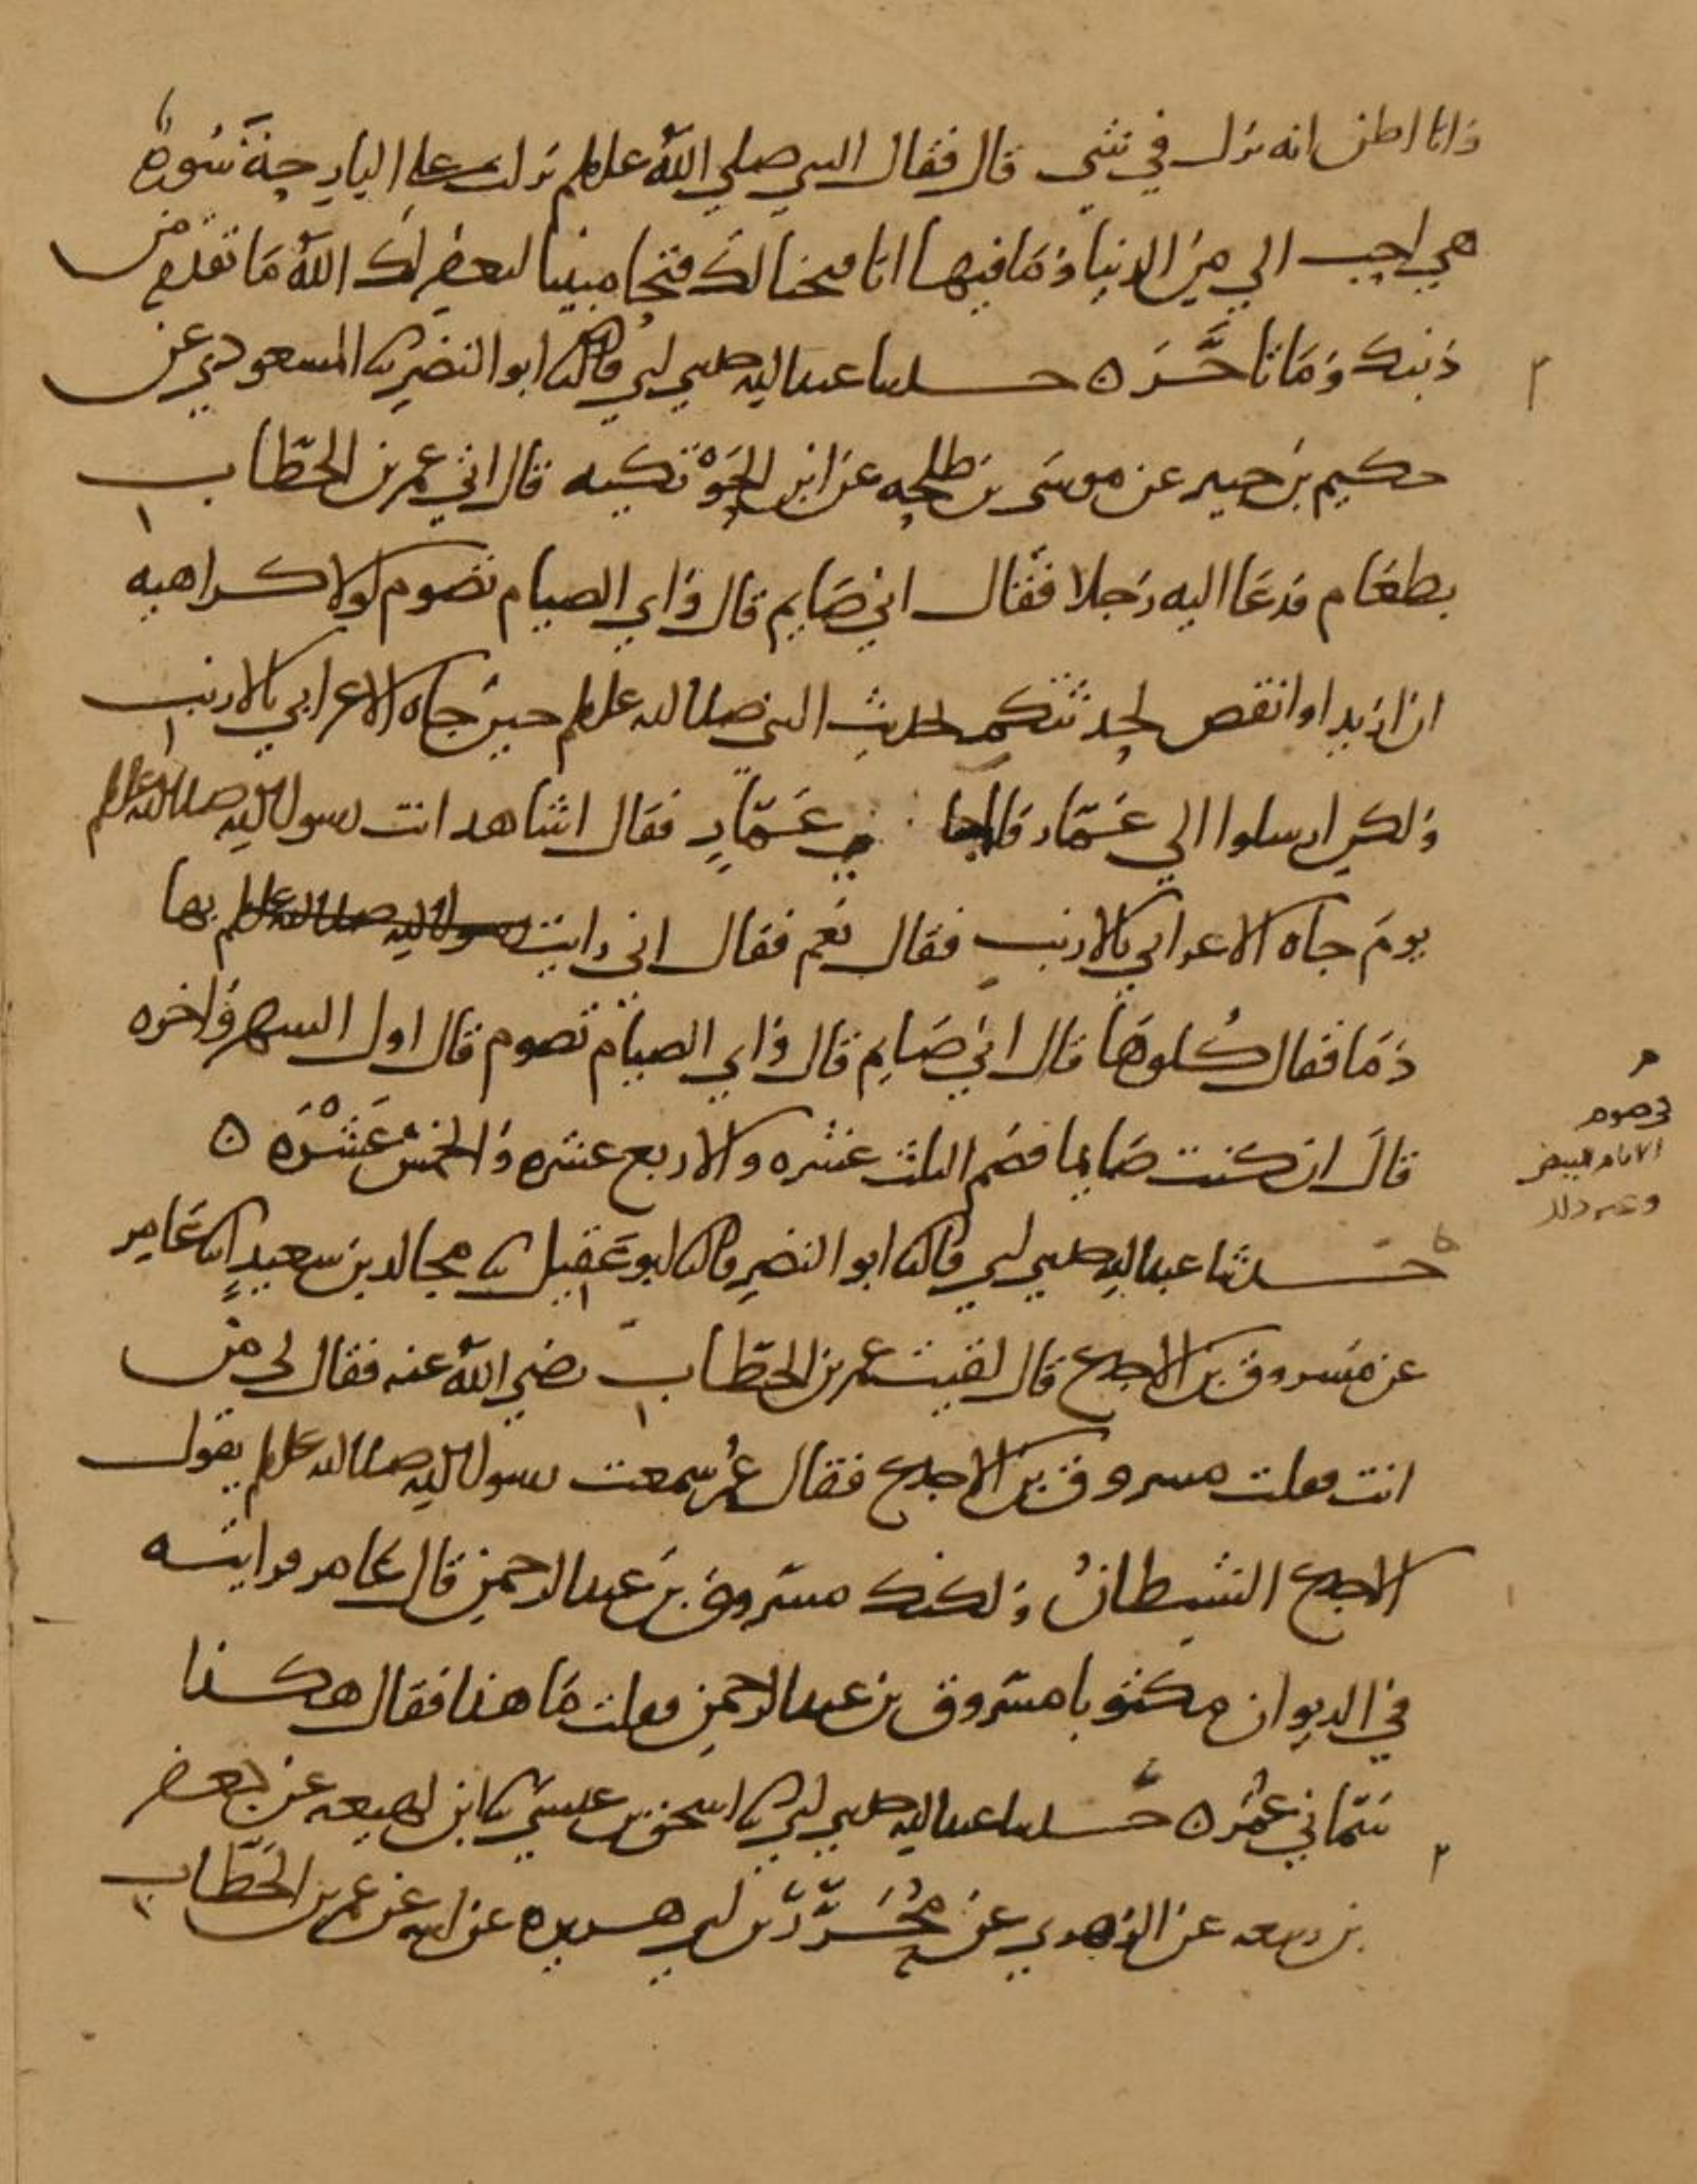 وانا اظن انه نزل في شي قال فقال النبي صلي الله علىه وسلم نزلت علي البارحة سورة
هي احب الي من الدنيا وما فيها انا فتحنا لك فتحا مبينا ليغفر لك الله ما تقدم من
ذنبك وما تاخر ه حدثنا عبد الله حدثني ابي قال ثنا ابو النضر ثنا المسعودي عن
حكيم بن جبير عن موسى بن طلحه عن ابن الحوتكيه قال اتي عمر بن الخطاب
بطعام فدعا اليه رجلا فقال اني صايم قال واي الصيام تصوم لولا كراهيه
ان ازيد او انقص لحدثتكم بحديث النبي صلى الله عليه وسلم حين جاه الاعرابي بالارنب
ولكن ارسلوا الي عمار فلما جا عمار فقال اشاهد انت رسول الله صلى الله عليه وسلم
يوم جاه الاعرابي بالارنب فقال نعم فقال اني رايت بها
دما فقال كلوها قال اني صايم قال واي الصيام تصوم قال اول الشهر واخره
قال ان كنت صايما فصم الثلث عشره والاربع عشره والخمس عشره ه
حدثنا عبد الله حدثني ابي قال ثنا ابو النضر قال ثنا ابو عقيل ثنا مجالد بن سعيد انا عامر
عن مسروق بن الاجدع قال لقيت عمر بن الخطاب رضي الله عنه فقال لي من
انت فقلت مسروق بن الاجدع فقال عمر سمعت رسول الله صلى الله عليه وسلم يقول
الاجدع الشيطان ولكنك مسروق بن عبد الرحمن قال عامر فرايته
في الديوان مكتوبا مسروق بن عبد الرحمن فقلت ما هذا فقال هكذا
سماني عمر ه حدثنا عبد الله حدثني ابي ثنا اسحق بن عيسى ثنا ابن لهيعه عن جعفر
بن ربيعه عن الزهري عن محرر بن ابي هريره عن ابيه عن عمر بن الخطاب
صوم
الايام البيض
وغير ذلك